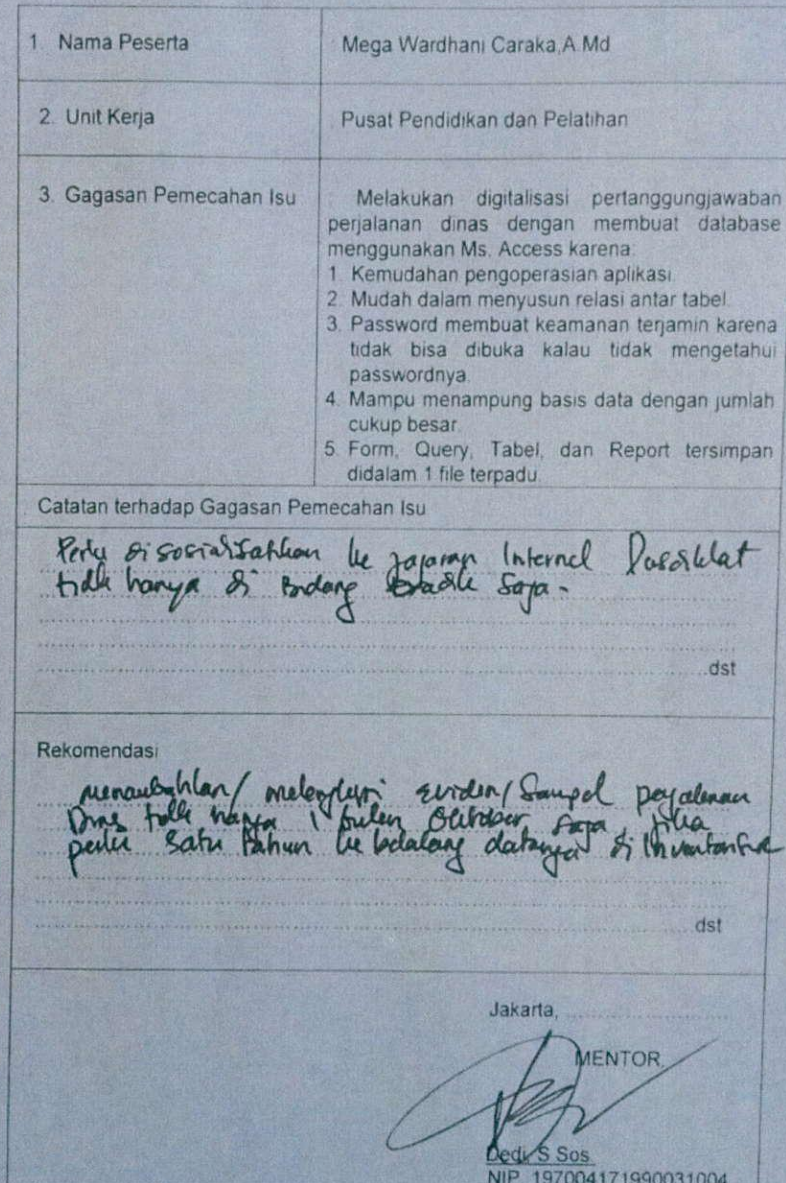 1. Nama Peserta
Mega Wardhani Caraka,A.Md
2. Unit Kerja
Pusat Pendidikan dan Pelatihan
3. Gagasan Pemecahan Isu
Melakukan digitalisasi pertanggungjawaban
perjalanan dinas dengan membuat database
menggunakan Ms. Access karena:
1. Kemudahan pengoperasian aplikasi.
2. Mudah dalam menyusun relasi antar tabel.
3. Password membuat keamanan terjamin karena
tidak bisa dibuka kalau tidak mengetahui
passwordnya.
4. Mampu menampung basis data dengan jumlah
cukup besar.
5. Form, Query, Tabel, dan Report tersimpan
didalam 1 file terpadu.
Catatan terhadap Gagasan Pemecahan Isu
Perlu disosialisasikan ke jajaran Internal Pusdiklat
tidk hanya di Bidang saja -
dst
Rekomendasi
menambahkan/ melengkapi eviden/ Sampel perjalanan
Dinas tidk hanya 1 bulan Oktober saja, jika
perlu satu tahun ke belakang datanya di
dst
Jakarta,
MENTOR
Dedi, S.Sos.
NIP. 197004171990031004